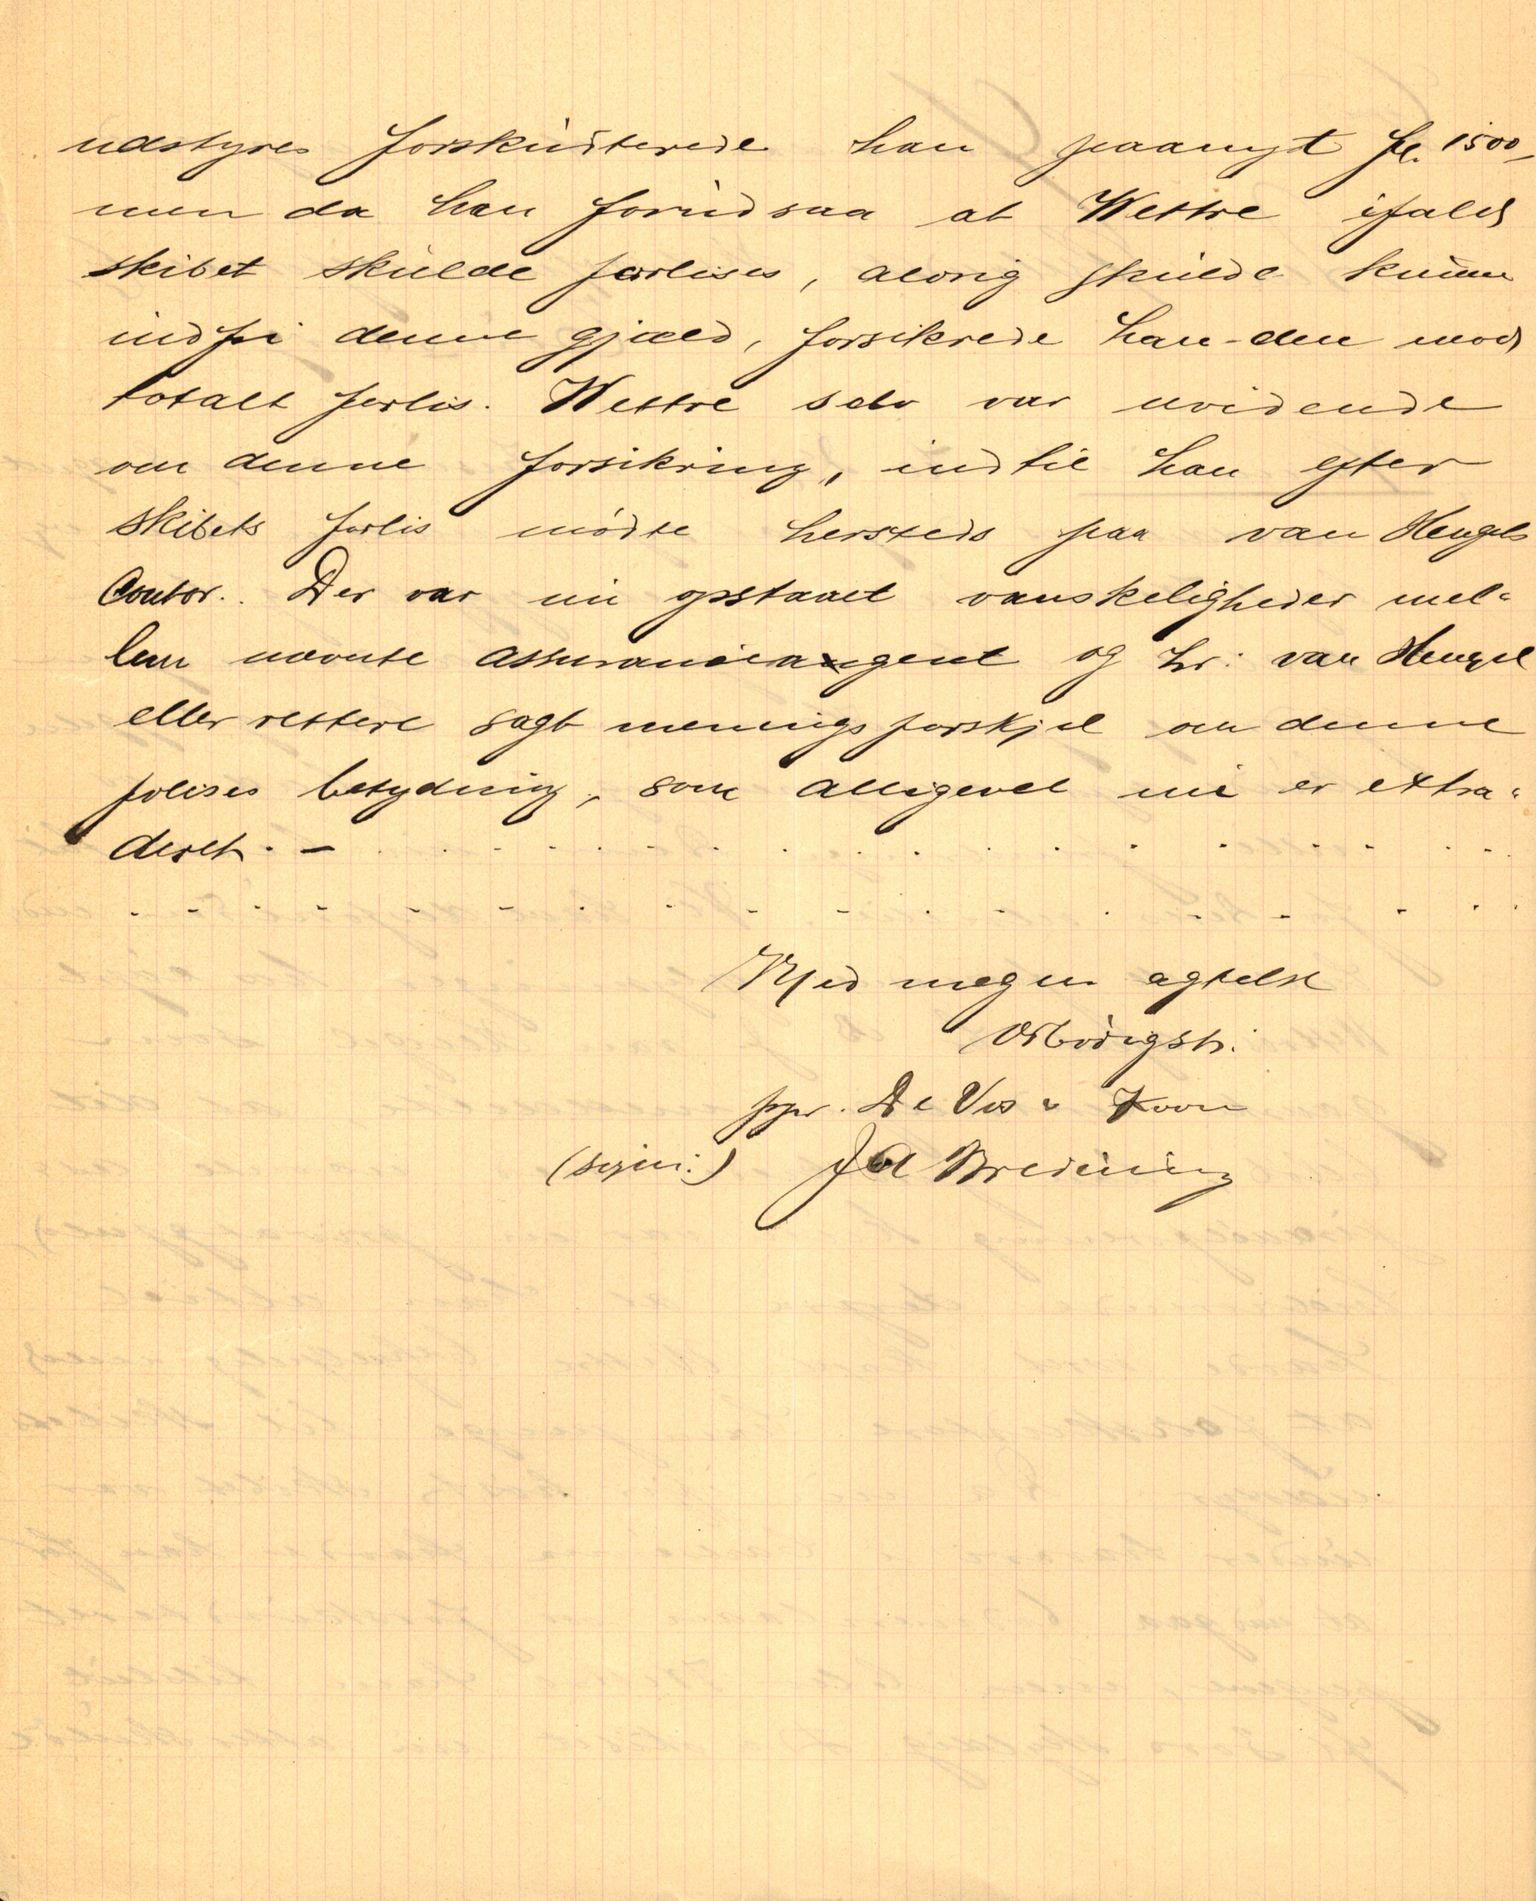 udstyres forskudterede han paanyt fl. 1500,-
men da han forudsaa at Wettre ifald
skibet skulde forlises, aldrig skulde kunne
indfri denne gjæld, forsikrede han den mod
totalt forlis. Wettre selv var uvidende
om denne forsikring, indtil han efter
skibets forlis mødte hersteds paa van Hengels
Contor. Der var nu opstaaet vanskeligheder mel-
lem nævnte assuranceagent og hr: van Hengel
eller rettere sagt meningsforskjel om denne
polises betydning, som alligevel nu er extra-
deret. -
Med megen agtelse
Ærbødigst.
ppr. De Vos & Zoon
(sign:) J A Breuning